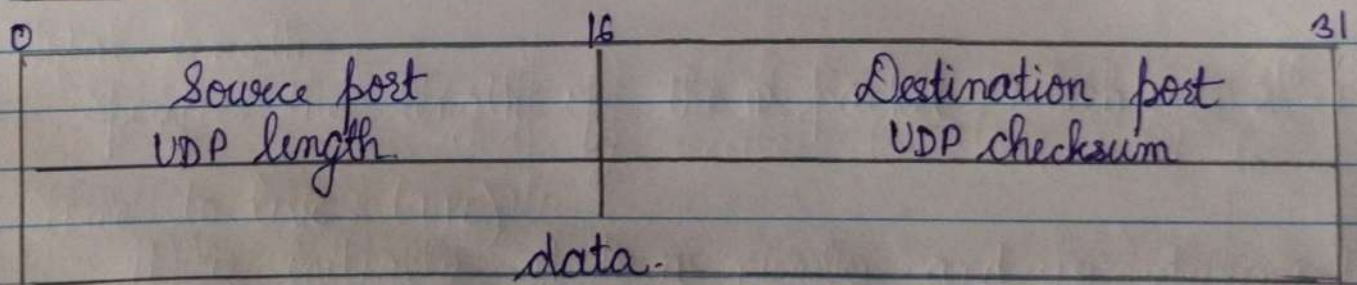 0 16 31
Source port Destination port
UDP length. UDP checksum
data.